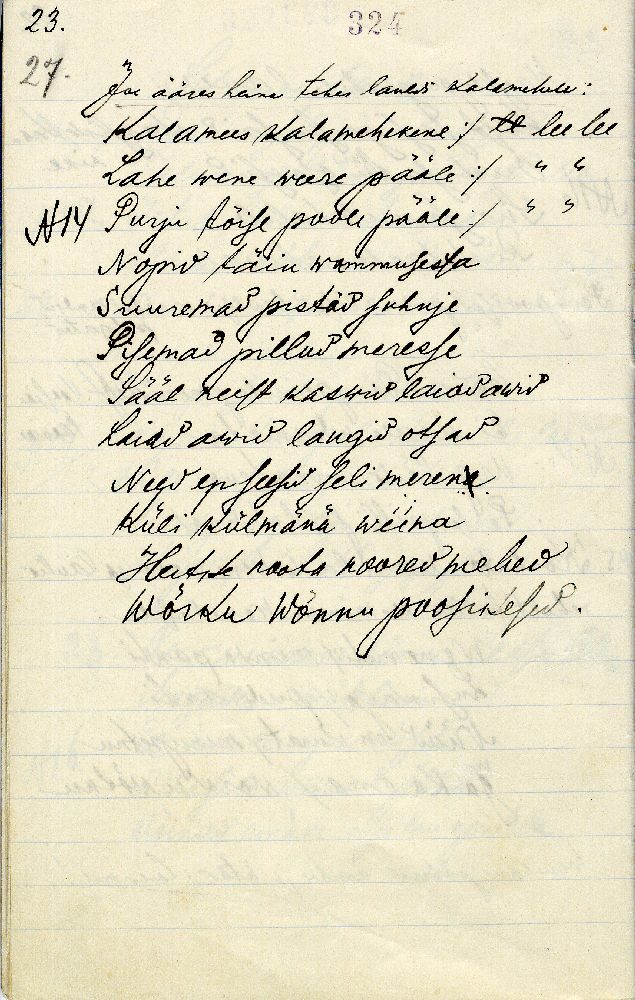 23.
324
27.
Jõe ääres heina tehes lauldi Kalamehele:
Kalamees Kalamehekene :/ lee lee
Lähe wene weere pääle :/ " "
N14 Purju tõise poole pääle :/ " "
Nopid täiu wammusesta
Suuremad pistäd suhuje
Pisemad pillud meresse
Sääl neist kaswid laiod awid
Laiad awid laugid otsad
Need ep seesid seli merena
Küli külmänä weena
Heitke noota noored mehed
Wõrku Wõnnu poosikesed.